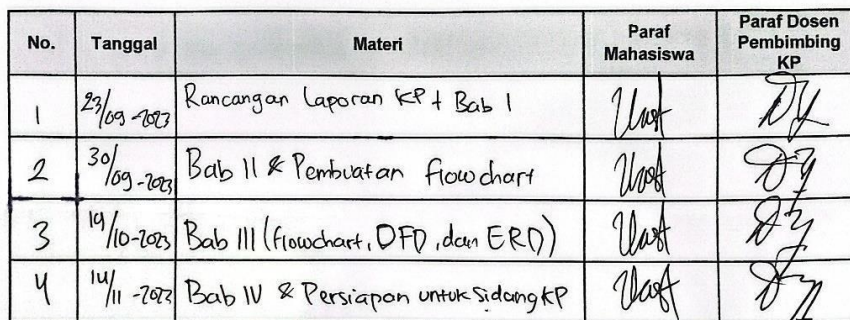 No. Tanggal Materi Paraf Mahasiswa Paraf Dosen Pembimbing KP
1 23/09-2023 Rancangan Laporan KP + Bab 1
2 30/09-2023 Bab II & Pembuatan flowchart
3 19/10-2023 Bab III (flowchart, DFD, dan ERD)
4 14/11-2023 Bab IV & Persiapan untuk Sidang KP